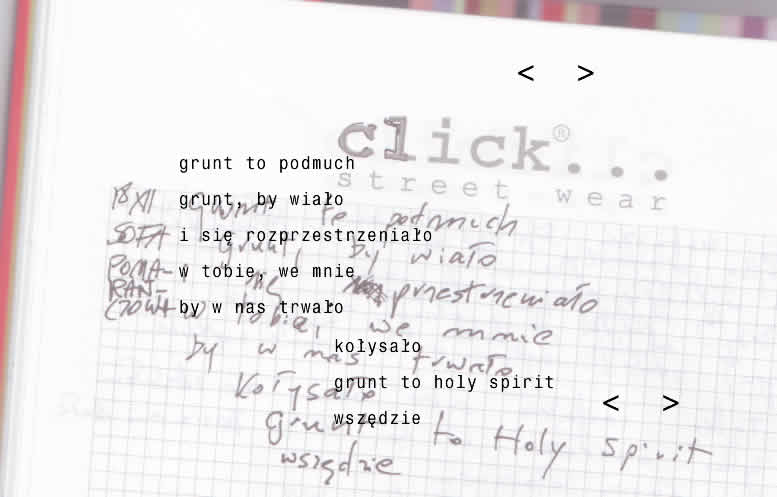 < >
click®...
street wear
grunt to podmuch
grunt, by wiało
i się rozprzestrzeniało
w tobie, we mnie
by w nas trwało
kołysało
grunt to holy spirit
wszędzie
< >
18 XII
SOFA
POMA-
RAŃ-
CZOWA
grunt to podmuch
grunt, by wiało
i się przestrzeniało
w tobie, we mnie
by w nas trwało
kołysało
grunt to Holy Spirit
wszędzie